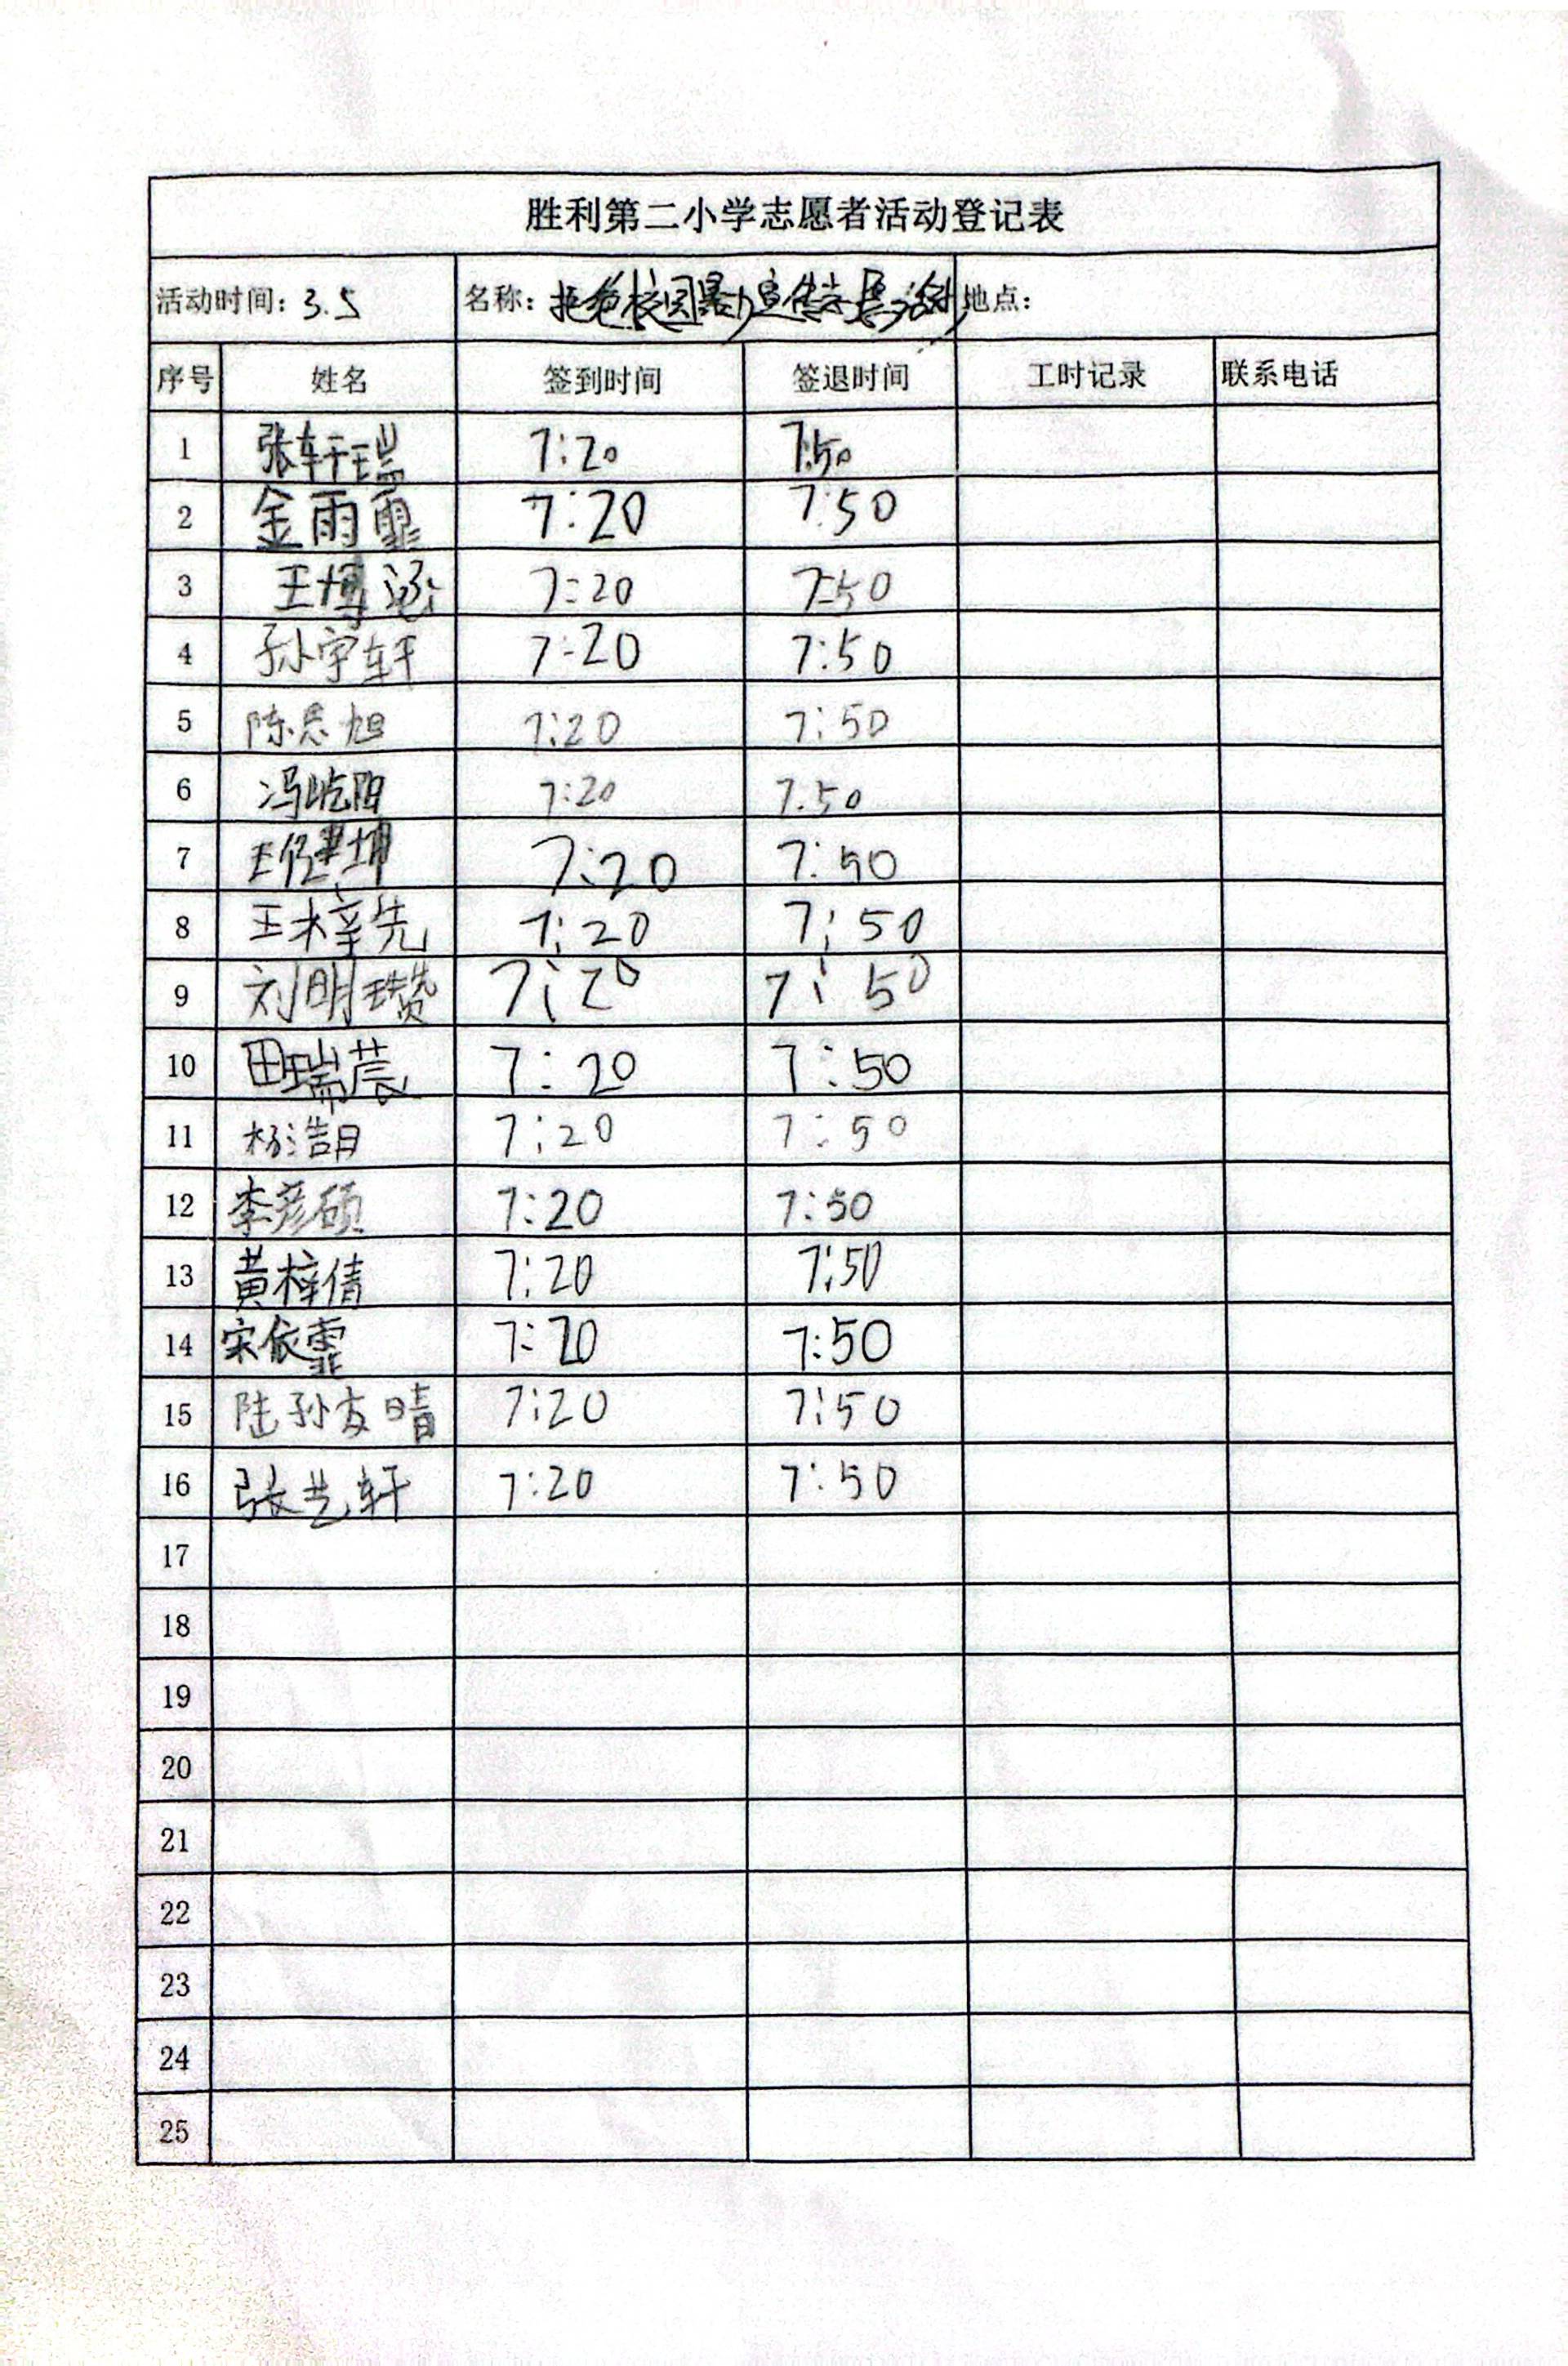 胜利第二小学志愿者活动登记表
活动时间: 3.5 名称: 拒绝校园暴力宣传 地点:
序号 姓名 签到时间 签退时间 工时记录 联系电话
1 张轩瑞 7:20 7:50
2 金雨霏 7:20 7:50
3 王博涵 7:20 7:50
4 孙宇轩 7:20 7:50
5 陈思旭 7:20 7:50
6 冯屹阳 7:20 7.50
7 王 坤 7:20 7:50
8 王梓先 7:20 7:50
9 刘明瓒 7:20 7:50
10 田瑞莀 7:20 7:50
11 杨浩月 7:20 7:50
12 李彦硕 7:20 7:50
13 黄梓倩 7:20 7:50
14 宋依霏 7:20 7:50
15 陆孙友晴 7:20 7:50
16 张艺轩 7:20 7:50
17
18
19
20
21
22
23
24
25